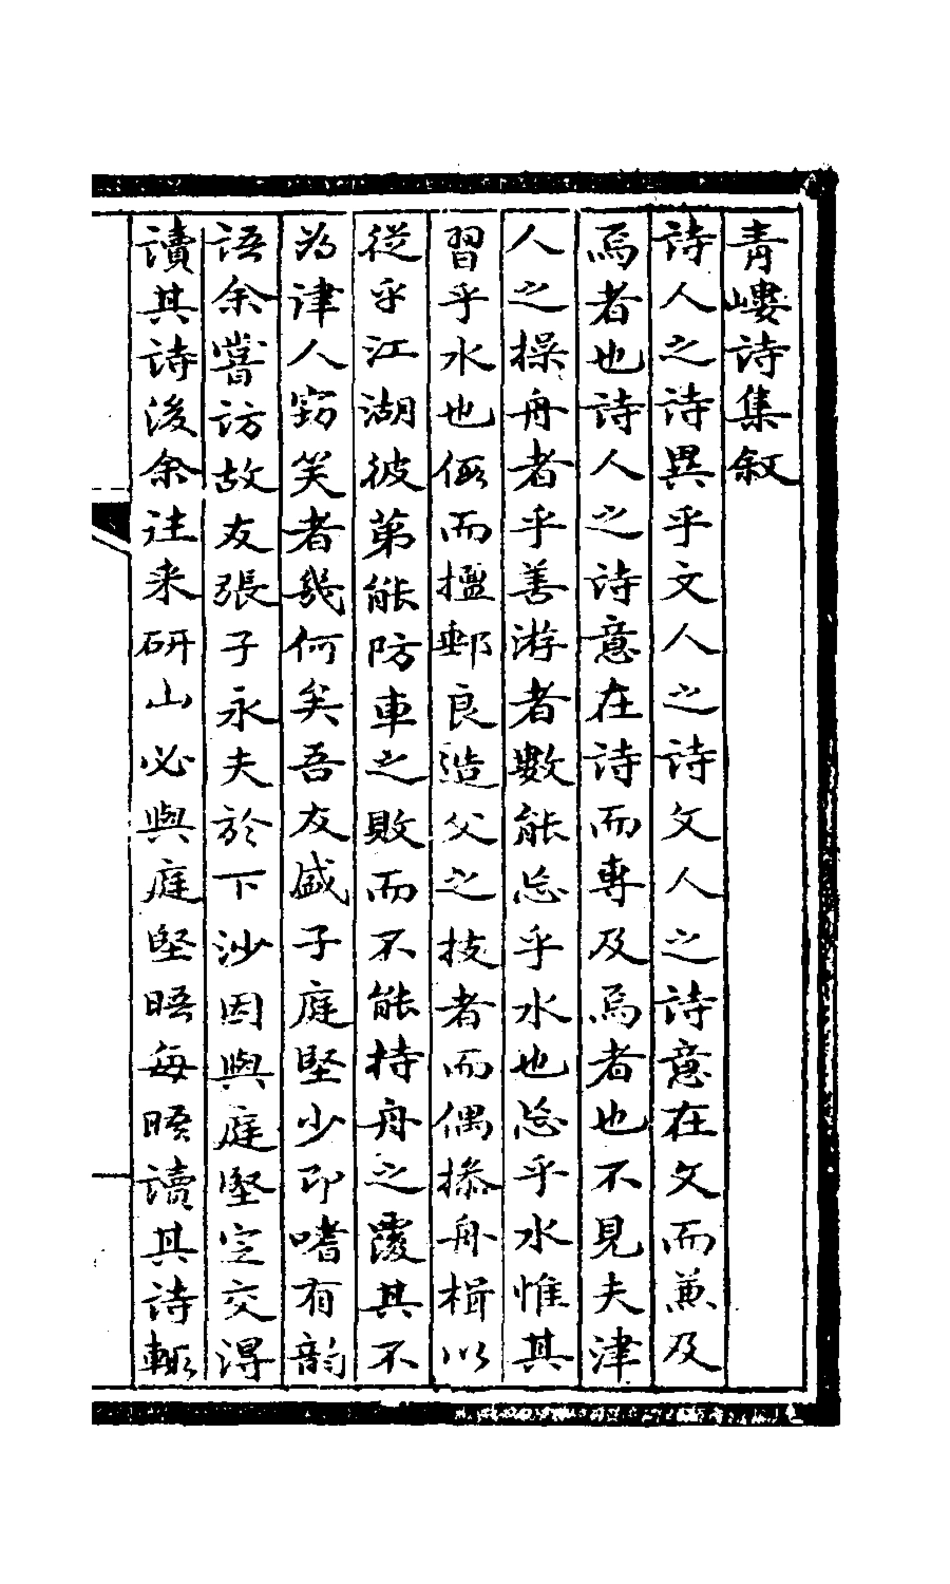 青嶁詩集敘
詩人之詩異乎文人之詩文人之詩意在文而兼及
焉者也詩人之詩意在詩而專及焉者也不見夫津
人之操舟者乎善游者數能忘乎水也忘乎水惟其
習乎水也假而搵郵良造父之技者而偶摻舟楫以
從乎江湖彼第能防車之敗而不能持舟之覆其不
為津人竊笑者幾何矣吾友盛子庭堅少即嗜有韵
語余嘗訪故友張子永夫於下沙因與庭堅定交得
讀其詩後余往来研山必與庭堅晤每晤讀其詩輒